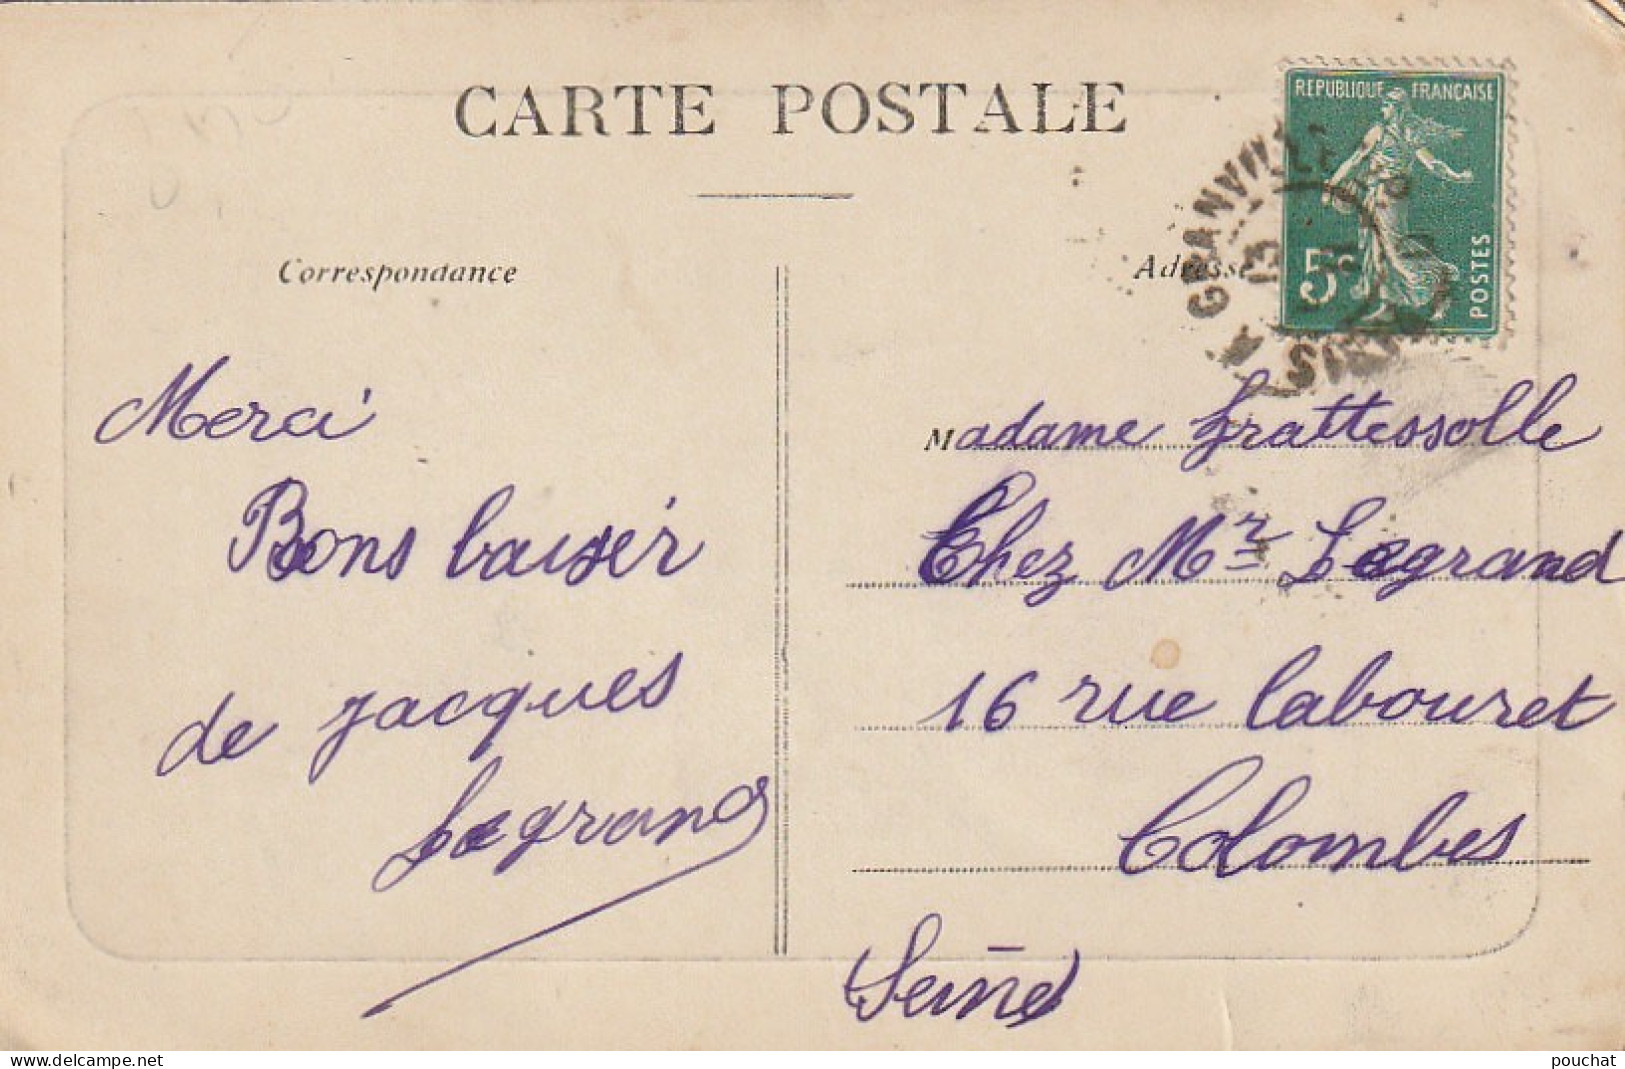 CARTE POSTALE
REPUBLIQUE FRANÇAISE
5c
POSTES
GRANVILLE
Correspondance
Adresse
Merci
Bons baiser
de Jacques
Legrand
Madame Grattessolle
Chez Mr Legrand
16 rue Labouret
Colombes
(Seine)
www.delcampe.net
pouchat